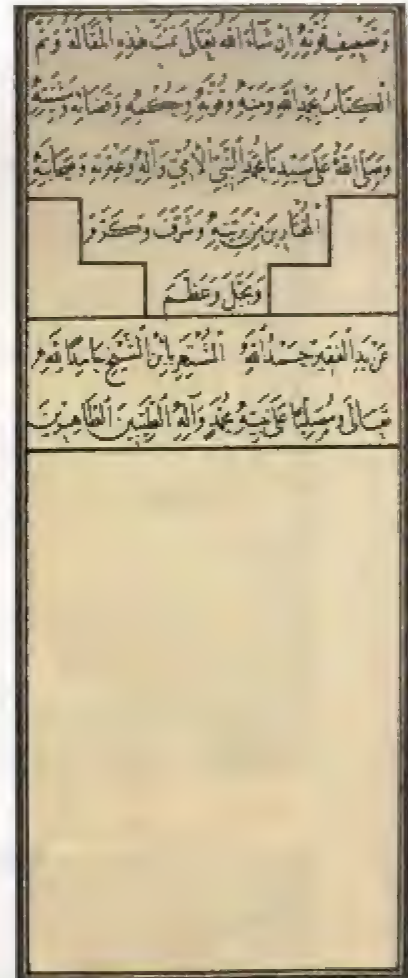 وَتَضْعِيفِ قُوَّتِهِ اِنْ شَآءَ اللهُ تَعَالَى تَمَّتْ هٰذِهِ الْمَقَالَةُ وَتَمَّ
الْكِتَابُ بِحَمْدِ اللهِ وَمَنِّهِ وَقُوَّتِهِ
وَصَلَّى اللهُ عَلَى سَيِّدِنَا مُحَمَّدٍ النَّبِيِّ الْاُمِّيِّ وَآلِهِ وَعِتْرَتِهِ وَصَحَابَتِهِ
الْمُخْتَارِينَ مِنْ بَرِيَّتِهِ وَشَرَّفَ وَكَرَّمَ
وَبَجَّلَ وَعَظَّمَ
عَنْ يَدِ الْفَقِيرِ حَمْدُ اللهِ بِابْنِ الشَّيْخِ حَامِدًا لِلهِ
تَعَالَى وَمُصَلِّيًا عَلَى نَبِيِّهِ مُحَمَّدٍ وَآلِهِ الطَّيِّبِينَ الطَّاهِرِينَ